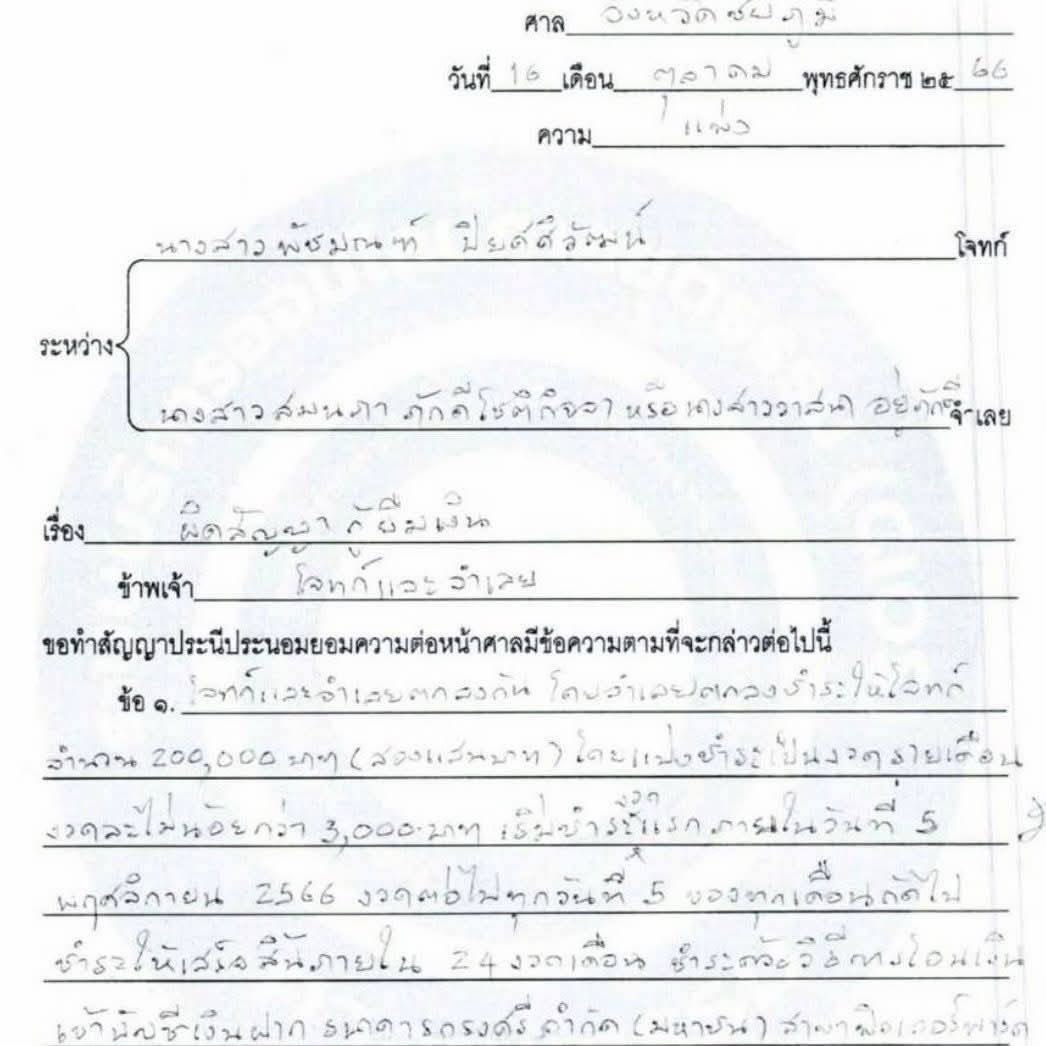 ศาล จังหวัดชัยภูมิ
วันที่ 16 เดือน ตุลาคม พุทธศักราช ๒๕ 66
ความ แพ่ง
นางสาวพัชมณฑ์ ปิยดิ์ศิวัฒน์ โจทก์
ระหว่าง
นางสาวสมนภา ภักดีโชติกิจจา หรือนางสาววาสนา อยู่ภักดี จำเลย
เรื่อง ผิดสัญญากู้ยืมเงิน
ข้าพเจ้า โจทก์และจำเลย
ขอทำสัญญาประนีประนอมยอมความต่อหน้าศาลมีข้อความตามที่จะกล่าวต่อไปนี้
ข้อ ๑. โจทก์และจำเลยตกลงกัน โดยจำเลยตกลงชำระให้โจทก์
จำนวน 200,000 บาท (สองแสนบาท) โดยแบ่งชำระเป็นงวดรายเดือน
งวดละไม่น้อยกว่า 3,000 บาท เริ่มชำระงวดแรกภายในวันที่ 5
พฤศจิกายน 2566 งวดต่อไปทุกวันที่ 5 ของทุกเดือนถัดไป
ชำระให้เสร็จสิ้นภายใน 24 งวดเดือน ชำระด้วยวิธีการโอนเงิน
เข้าบัญชีเงินฝาก ธนาคารกรุงศรี จำกัด (มหาชน) สาขา